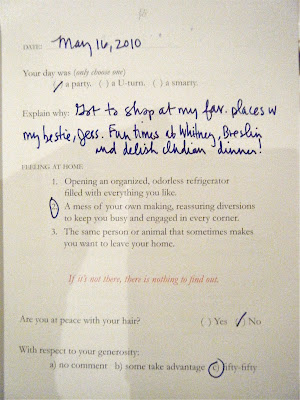 DATE: May 16, 2010
Your day was (only choose one)
(/) a party. ( ) a U-turn. ( ) a smarty.
Explain why: Got to shop at my fav. places w
my bestie, Jess. Fun times @ Whitney, Breslin
and delish Indian dinner!
FEELING AT HOME
1. Opening an organized, odorless refrigerator
filled with everything you like.
2. A mess of your own making, reassuring diversions
to keep you busy and engaged in every corner.
3. The same person or animal that sometimes makes
you want to leave your home.
If it's not there, there is nothing to find out.
Are you at peace with your hair? ( ) Yes (/) No
With respect to your generosity:
a) no comment b) some take advantage c) fifty-fifty